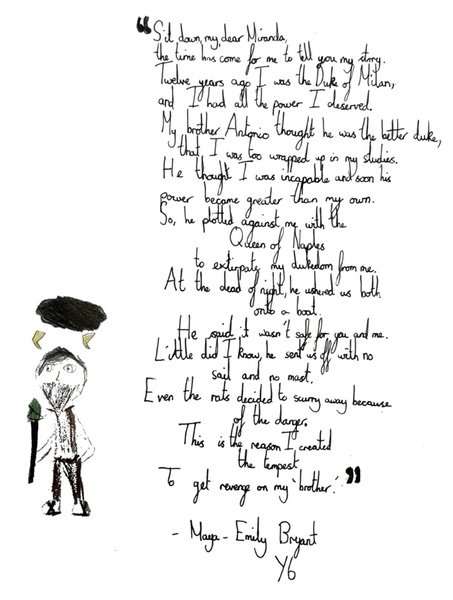 "Sit down, my dear Miranda,
the time has come for me to tell you my story.
Twelve years ago I was the Duke of Milan,
and I had all the power I deserved.
My brother Antonio thought he was the better duke,
that I was too wrapped up in my studies.
He thought I was incapable and soon his
power became greater than my own.
So, he plotted against me with the
Queen of Naples
to extirpate my dukedom from me.
At the dead of night, he ushered us both
onto a boat.
He said it wasn't safe for you and me.
Little did I know, he sent us off with no
sail and no mast.
Even the rats decided to scurry away because
of the danger.
This is the reason I created
the tempest
To get revenge on my 'brother.'"
- Maya-Emily Bryant
Y6